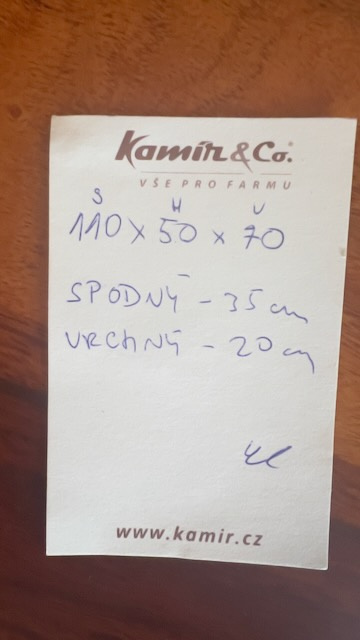 Kamír&Co.®
VŠE PRO FARMU
Š H V
110 x 50 x 70
SPODNÝ - 35 cm
VRCHNÝ - 20 cm
www.kamir.cz